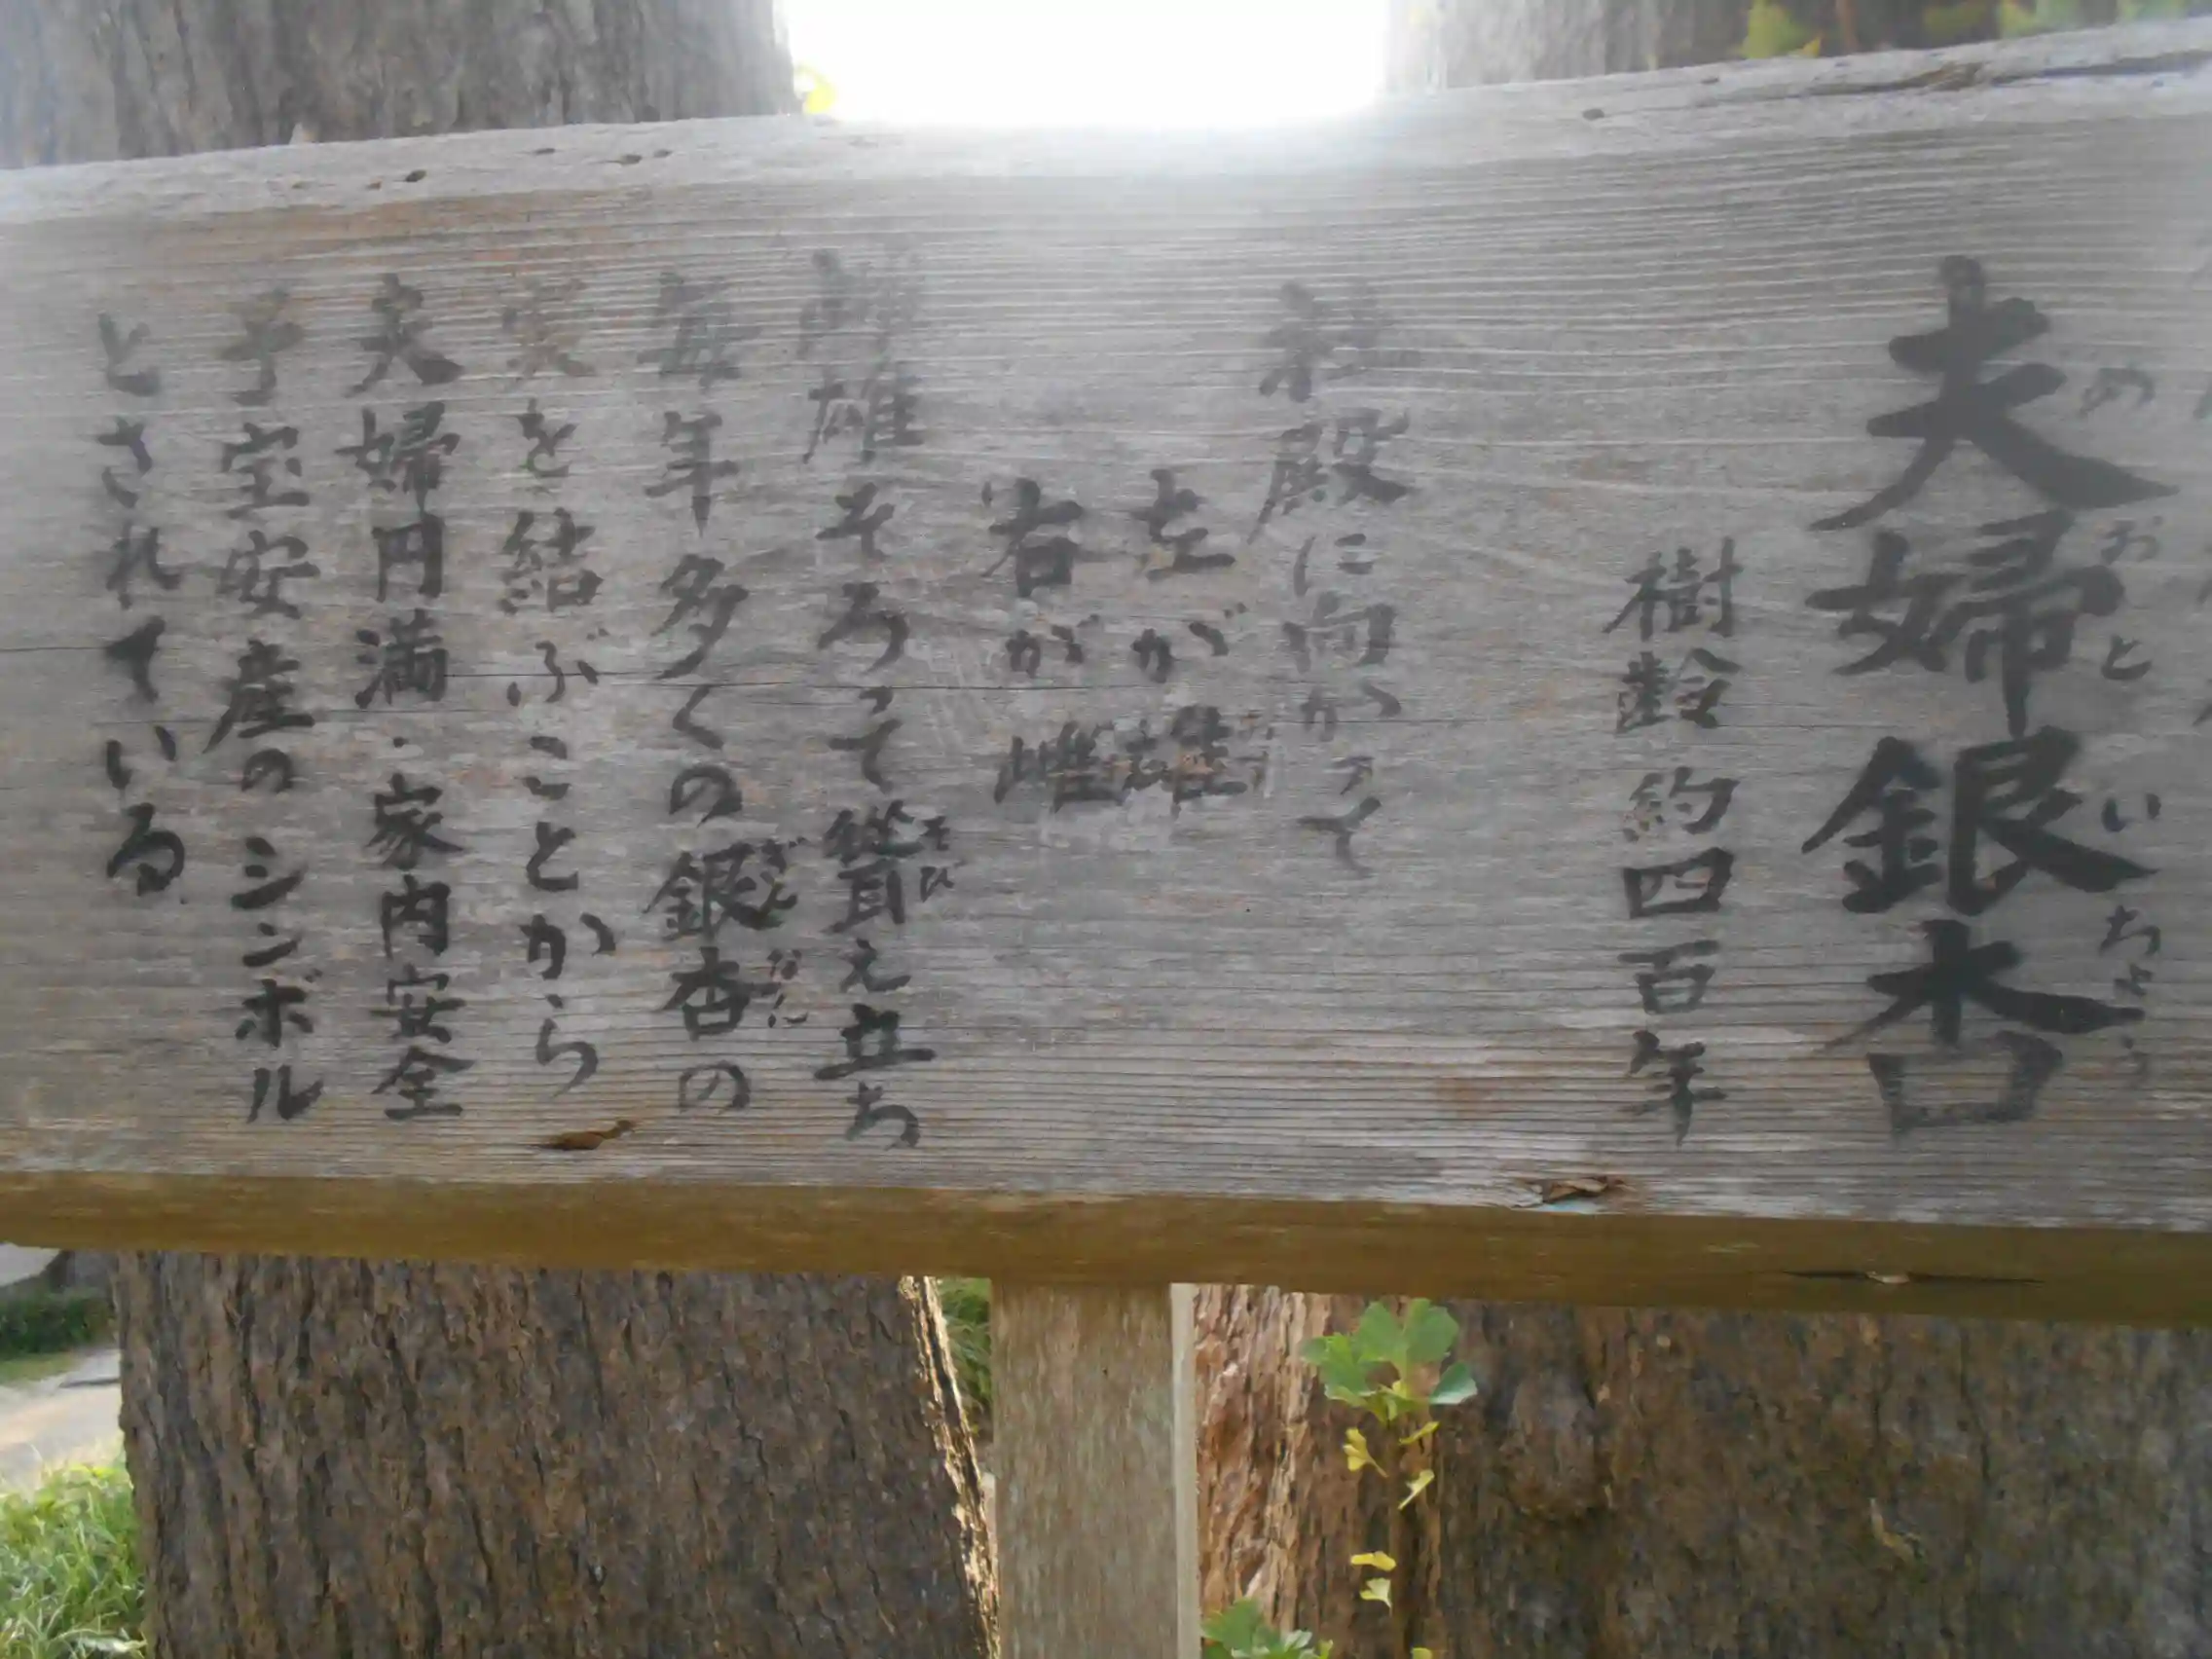 夫婦銀杏
めおといちょう
樹齢 約四百年
社殿に向かって
左が雄
右が雌
雌雄そろって聳え立ち
そび
毎年多くの銀杏の
ぎんなん
実を結ぶことから
夫婦円満・家内安全
子宝安産のシンボル
とされている